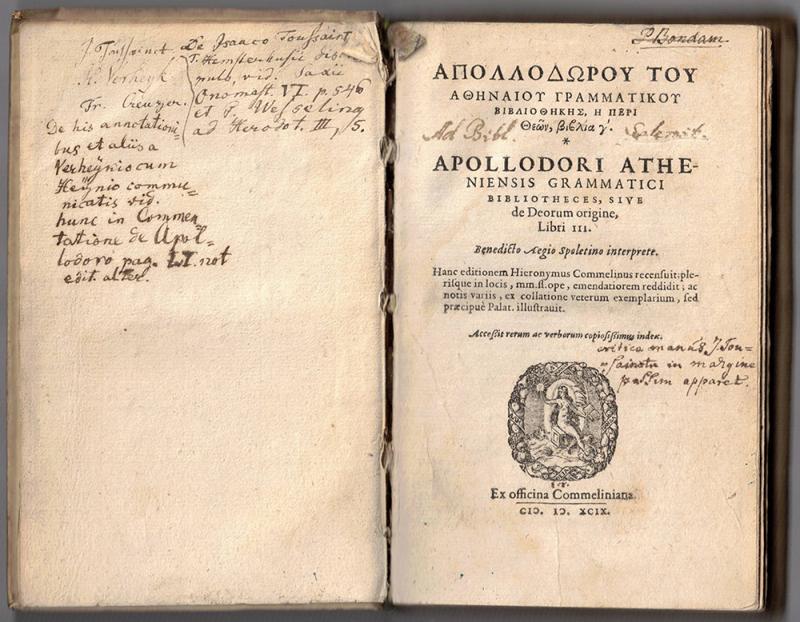 J. Toussaint
H. Verheyk
Fr. Creuzer.
De Isaaco Toussaint
T. Hemsterhusii
vid. Saxii
Onomast. VI. p. 546
et P. Wesseling
ad Herodot. III, 5.
De his annotationi-
bus et aliis a
Verheykio cum
Heynio commu-
nicatis vid.
hunc in Commen
tatione de Apol-
lodoro pag. not
edit. alter.
P. Bondam
ΑΠΟΛΛΟΔΩΡΟΥ ΤΟΥ
ΑΘΗΝΑΙΟΥ ΓΡΑΜΜΑΤΙΚΟΥ
ΒΙΒΛΙΟΘΗΚΗΣ, Η ΠΕΡΙ
Θεῶν, βιβλία γ΄.
Ad Bibl.
*
APOLLODORI ATHE-
NIENSIS GRAMMATICI
BIBLIOTHECES, SIVE
de Deorum origine,
Libri III.
Benedicto Aegio Spoletino interprete.
Hanc editionem Hieronymus Commelinus recensuit: ple-
risque in locis, mm. ſſ. ope, emendatiorem reddidit; ac
notis variis, ex collatione veterum exemplarium, sed
præcipuè Palat. illustrauit.
Accessit rerum ac verborum copiosissimus index.
critica manus J. Tou-
ssainetu in margine
passim apparet.
Ex officina Commeliniana.
CIↃ. IↃ. XCIX.